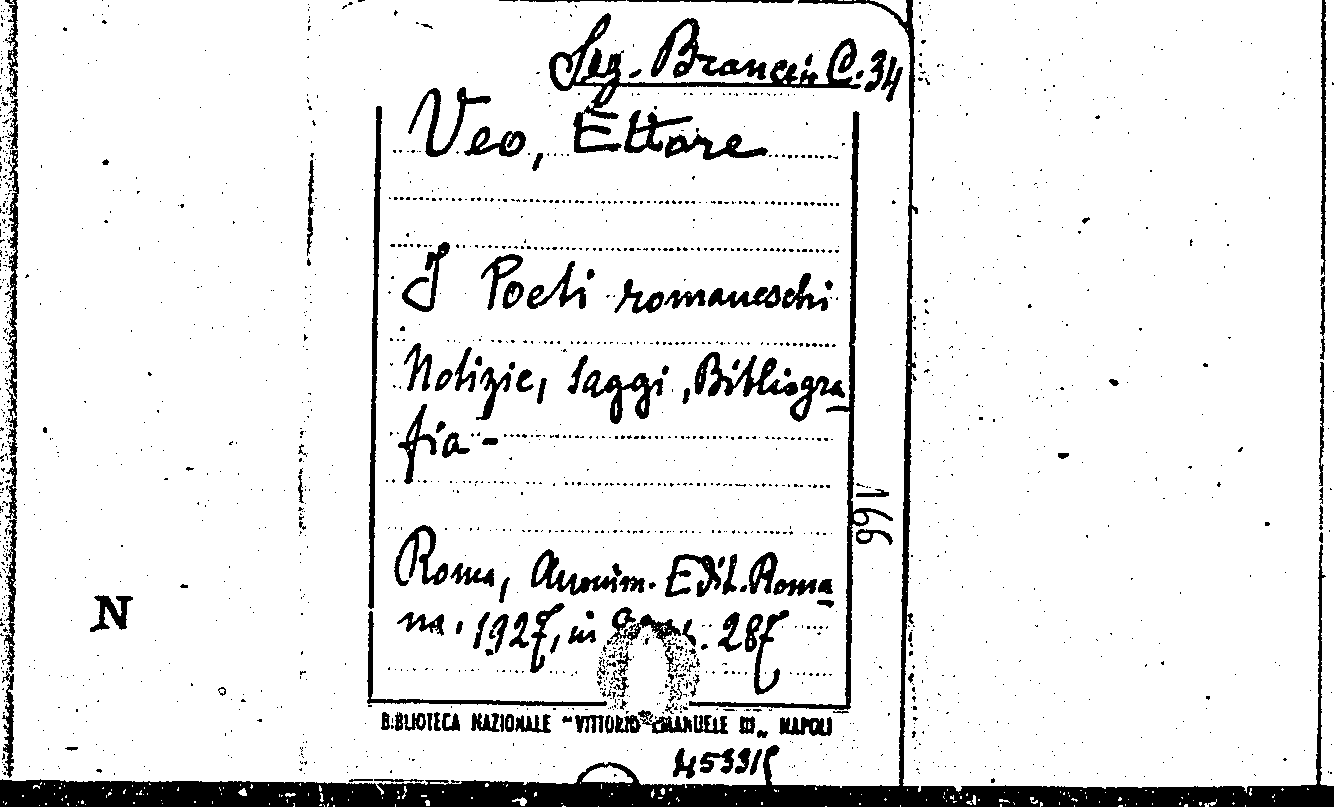 Seg. Brancin C. 34
Veo, Ettore
I Poeti romaneschi
Notizie, saggi, Bibliogra
fia -
Roma, Anonim. Edit. Roma
na. 1927, in 287
166
N
BIBLIOTECA NAZIONALE "VITTORIO EMANUELE III„ NAPOLI